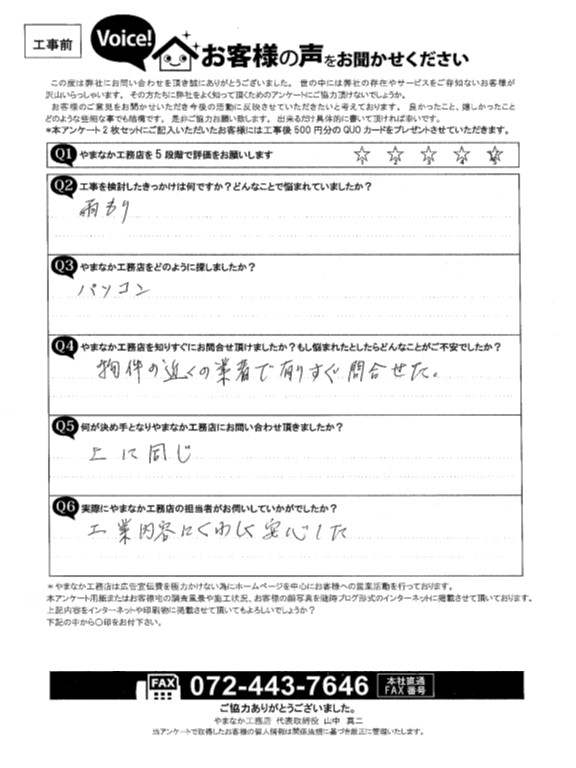 工事前
Voice!
お客様の声をお聞かせください
この度は弊社にお問い合わせを頂き誠にありがとうございました。世の中には弊社の存在やサービスをご存知ないお客様が
沢山いらっしゃいます。その方たちに弊社をよく知って頂くためのアンケートにご協力頂けないでしょうか。
お客様のご意見をお聞かせいただき今後の活動に反映させていただきたいと考えております。良かったこと、嬉しかったこと
どのような些細な事でも結構です。是非ご協力お願い致します。出来るだけ具体的に書いて頂ければ幸いです。
*本アンケート2枚セットにご記入いただいたお客様には工事後500円分のQUOカードをプレゼントさせていただきます。
Q1 やまなか工務店を5段階で評価をお願いします ☆1 ☆2 ☆3 ☆4 ☆5
Q2 工事を検討したきっかけは何ですか?どんなことで悩まれていましたか?
雨もり
Q3 やまなか工務店をどのように探しましたか?
パソコン
Q4 やまなか工務店を知りすぐにお問合せ頂けましたか?もし悩まれたとしたらどんなことがご不安でしたか?
物件の近くの業者で有りすぐ問合せた。
Q5 何が決め手となりやまなか工務店にお問い合わせ頂きましたか?
上に同じ
Q6 実際にやまなか工務店の担当者がお伺いしていかがでしたか?
工業内容にくわしく安心した
*やまなか工務店は広告宣伝費を極力かけない為にホームページを中心にお客様への営業活動を行っております。
本アンケート用紙またはお客様宅の調査風景や施工状況、お客様の顔写真を随時ブログ形式のインターネットに掲載させて頂いております。
上記内容をインターネットや印刷物に掲載させて頂いてもよろしいでしょうか?
下記の中から〇印をお付下さい。
FAX 072-443-7646 本社直通
FAX番号
ご協力ありがとうございました。
やまなか工務店 代表取締役 山中 真二
当アンケートで取得したお客様の個人情報は関係法規に基づき厳正に管理いたします。